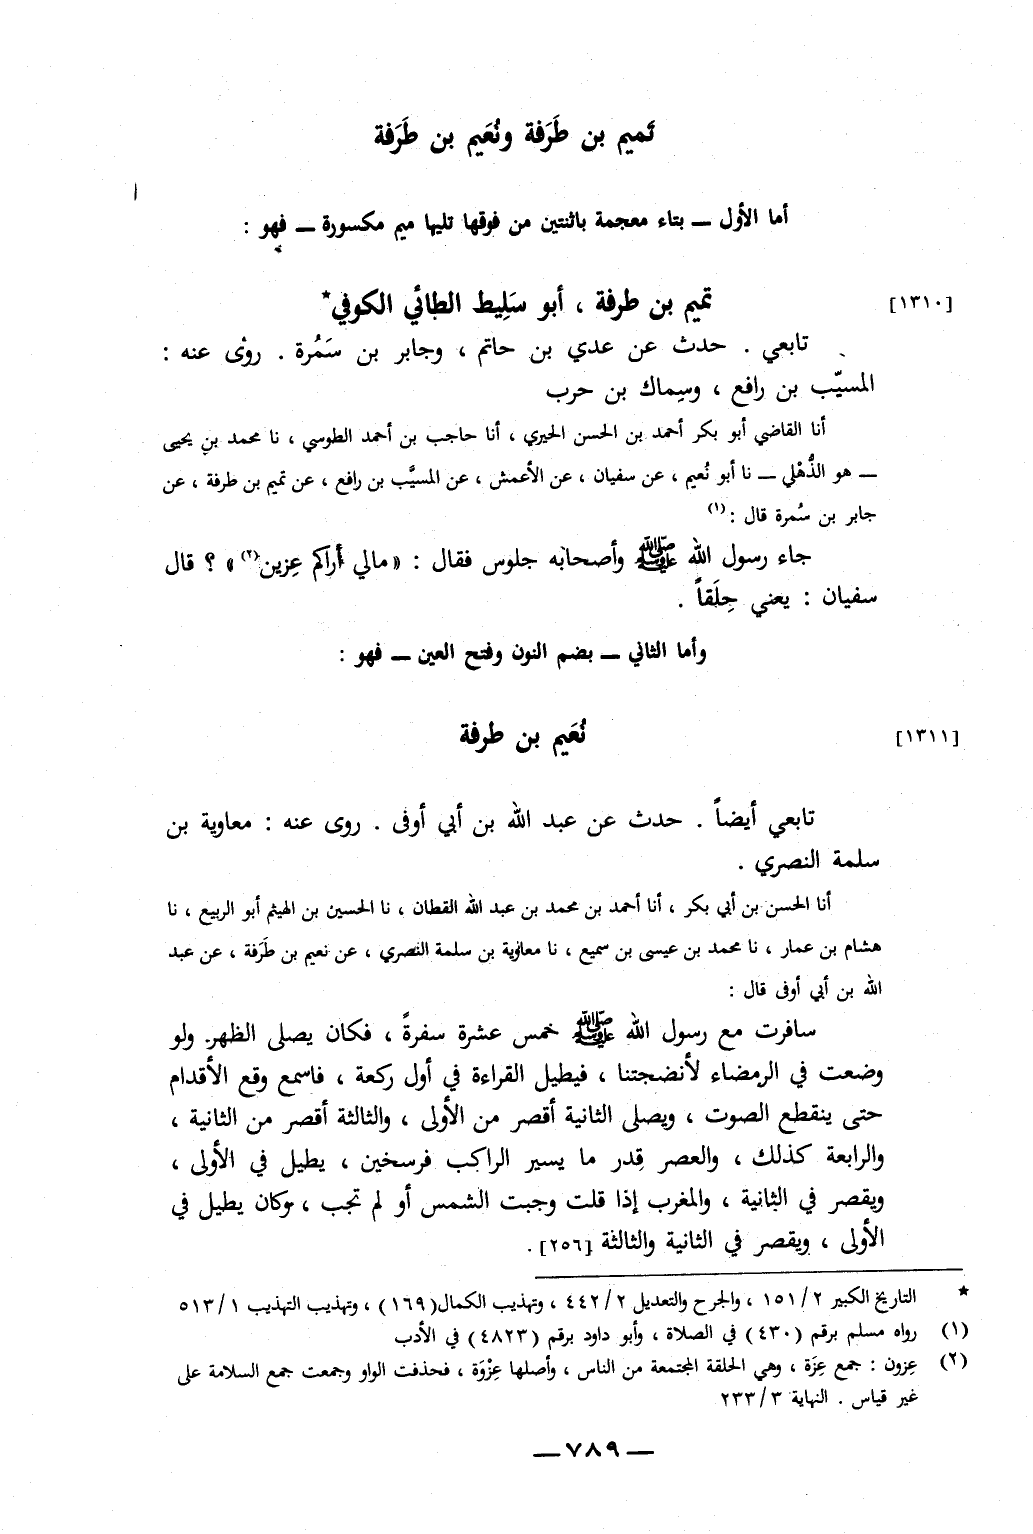 تَميم بن طَرَفة ونُعَيم بن طَرَفة
أما الأول ــ بتاء معجمة باثنتين من فوقها تليها ميم مكسورة ــ فهو :
[١٣١٠] تميم بن طرفة ، أبو سَلِيط الطائي الكوفي*
تابعي . حدث عن عدي بن حاتم ، وجابر بن سَمُرة . روى عنه :
المسيّب بن رافع ، وسِماك بن حرب
أنا القاضي أبو بكر أحمد بن الحسن الحيري ، أنا حاجب بن أحمد الطوسي ، نا محمد بن يحيى
ــ هو الذُّهْلي ــ نا أبو نُعيم ، عن سفيان ، عن الأعمش ، عن المسيَّب بن رافع ، عن تميم بن طرفة ، عن
جابر بن سُمرة قال :(١)
جاء رسول الله ﷺ وأصحابه جلوس فقال : «مالي أراكم عِزين(٢)» ؟ قال
سفيان : يعني حِلَقاً .
وأما الثاني ــ بضم النون وفتح العين ــ فهو :
[١٣١١] نُعَيم بن طرفة
تابعي أيضاً . حدث عن عبد الله بن أبي أوفى . روى عنه : معاوية بن
سلمة النصري .
أنا الحسن بن أبي بكر ، أنا أحمد بن محمد بن عبد الله القطان ، نا الحسين بن الهيثم أبو الربيع ، نا
هشام بن عمار ، نا محمد بن عيسى بن سميع ، نا معاوية بن سلمة النصري ، عن نعيم بن طَرَفة ، عن عبد
الله بن أبي أوفى قال :
سافرت مع رسول الله ﷺ خمس عشرة سفرةً ، فكان يصلى الظهر ولو
وضعت في الرمضاء لأنضجتنا ، فيطيل القراءة في أول ركعة ، فاسمع وقع الأقدام
حتى ينقطع الصوت ، ويصلى الثانية أقصر من الأولى ، والثالثة أقصر من الثانية ،
والرابعة كذلك ، والعصر قدر ما يسير الراكب فرسخين ، يطيل في الأولى ،
ويقصر في الثانية ، والمغرب إذا قلت وجبت الشمس أو لم تجب ، وكان يطيل في
الأولى ، ويقصر في الثانية والثالثة [٢٥٦] .
* التاريخ الكبير ٢/ ١٥١ ، والجرح والتعديل ٢/ ٤٤٢ ، وتهذيب الكمال(١٦٩) ، وتهذيب التهذيب ١/ ٥١٣
(١) رواه مسلم برقم (٤٣٠) في الصلاة ، وأبو داود برقم (٤٨٢٣) في الأدب
(٢) عِزون : جمع عِزَة ، وهي الحلقة المجتمعة من الناس ، وأصلها عِزْوَة ، فحذفت الواو وجمعت جمع السلامة على
غير قياس . النهاية ٣/ ٢٣٣
ــ ٧٨٩ ــ